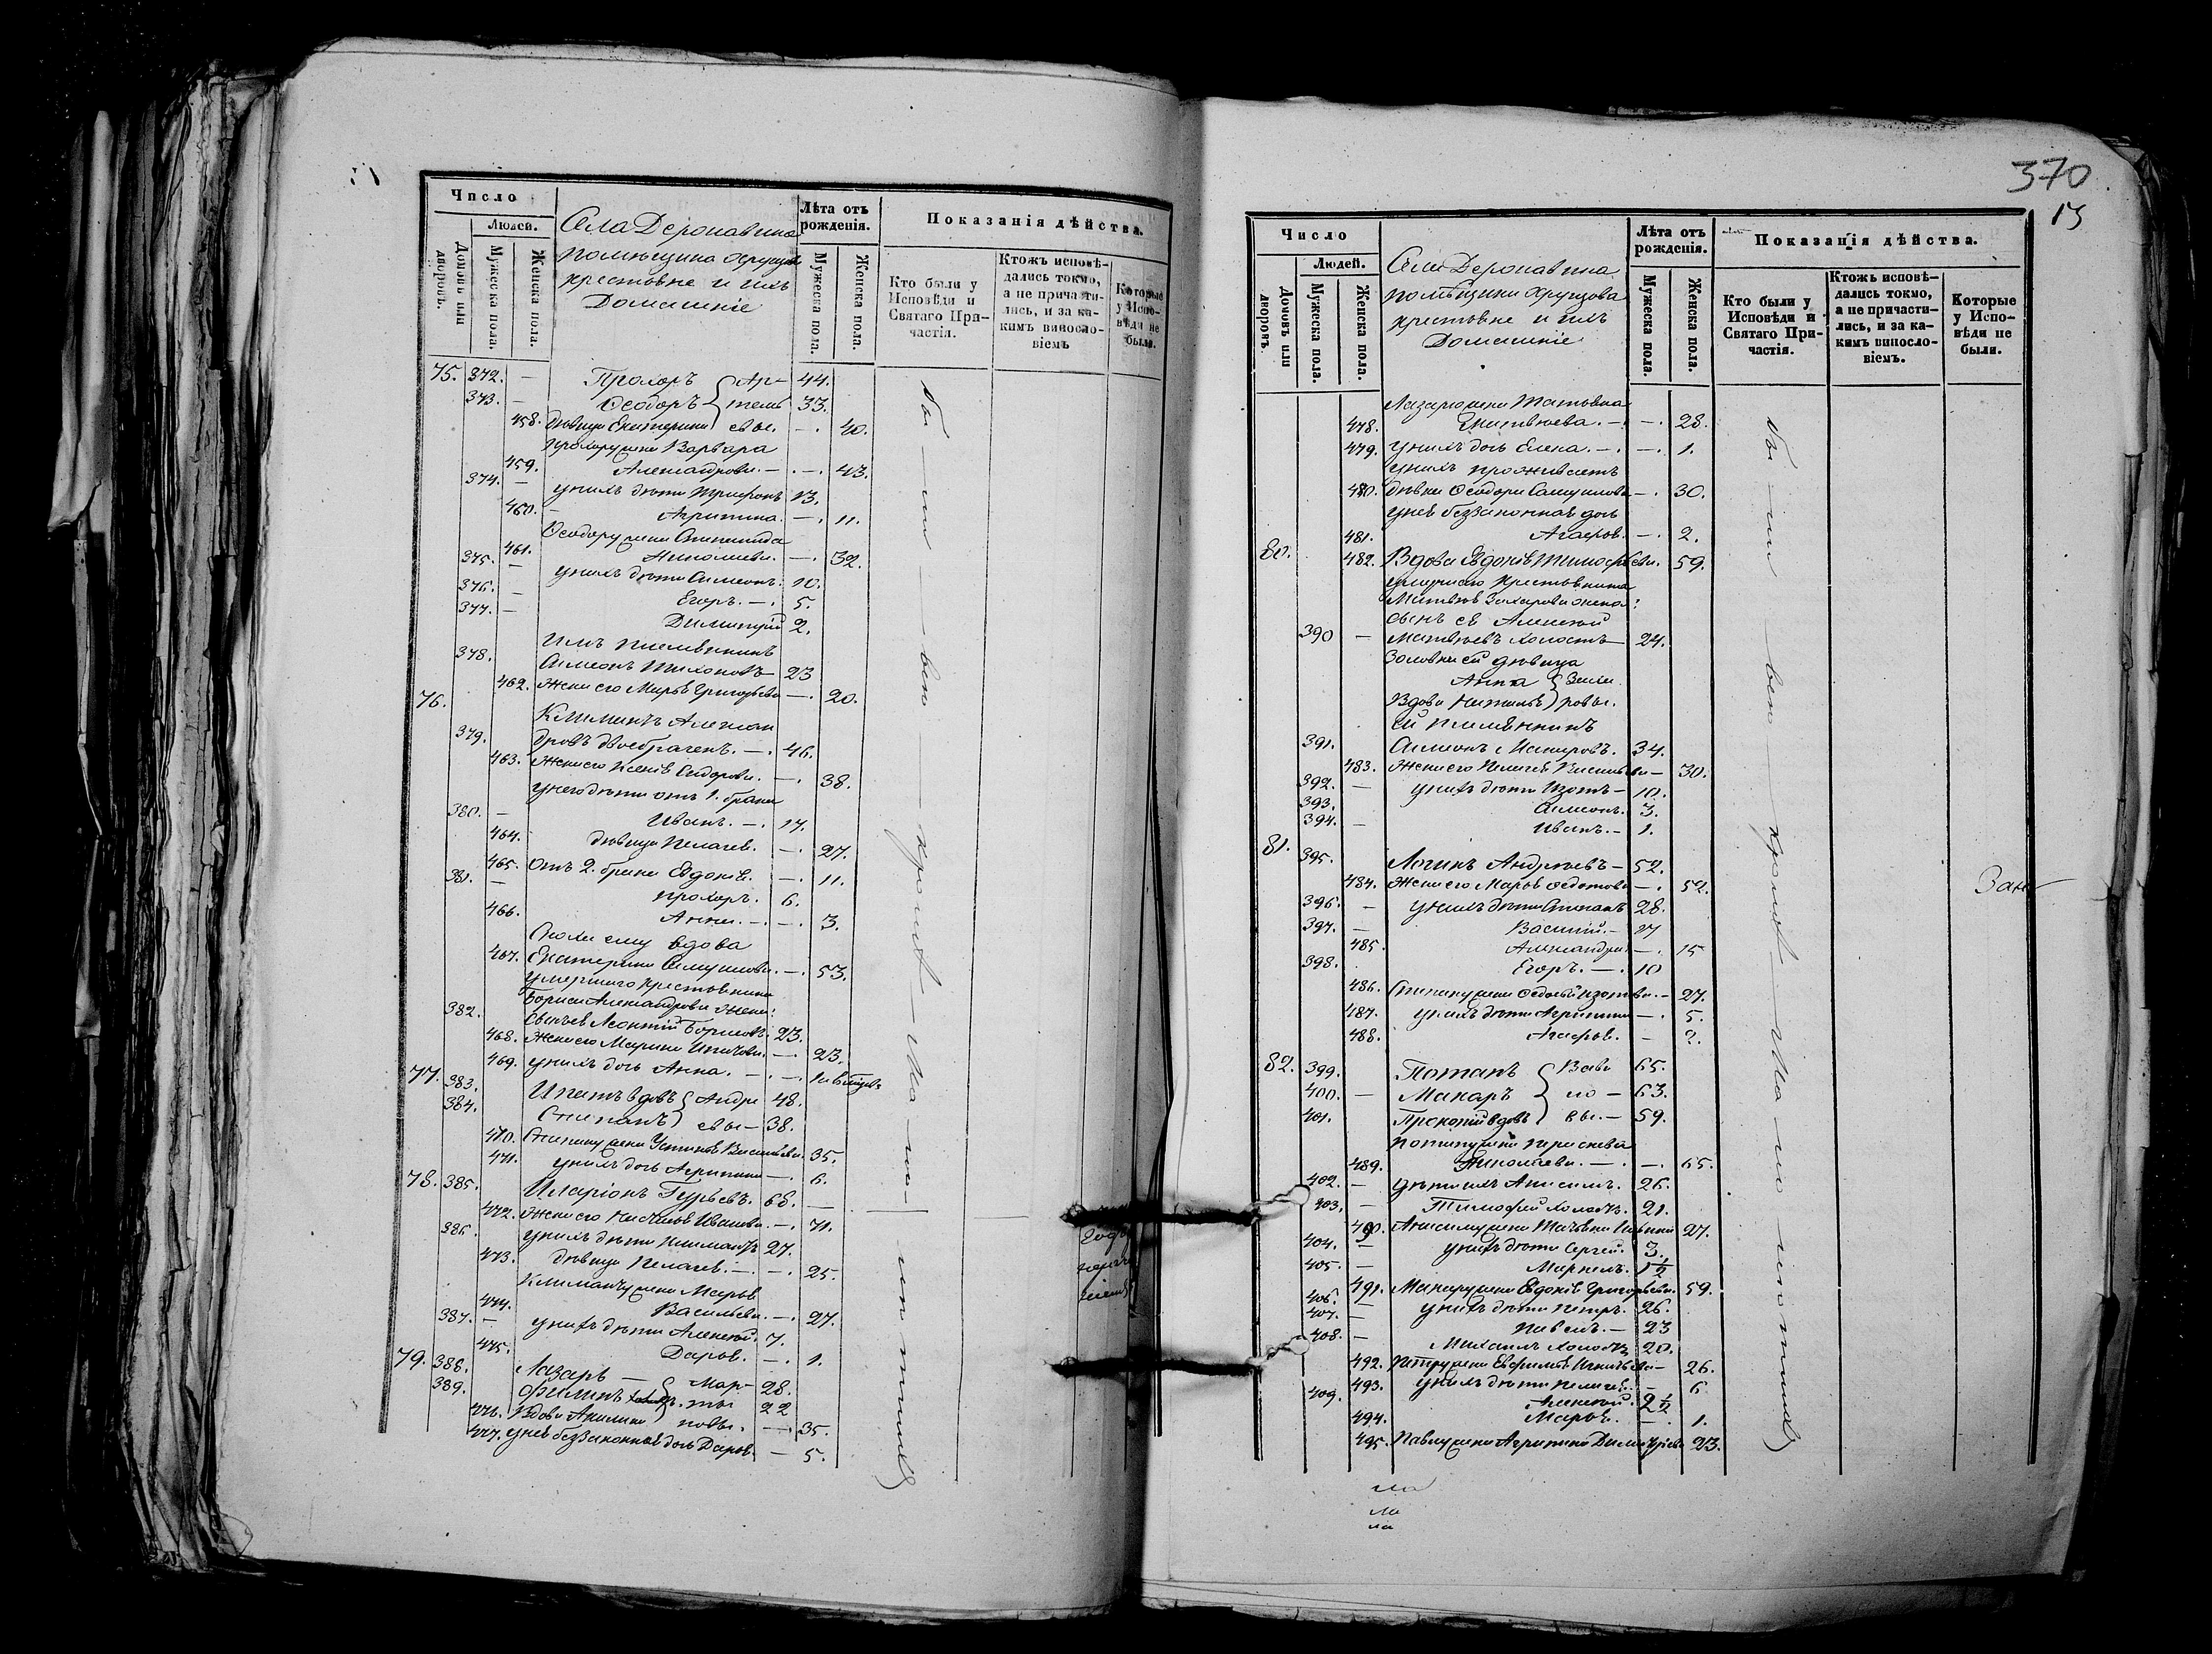 Число
Людей.
Домовъ или дворовъ.
Мужеска пола.
Женска пола.
Села Державина
помѣщика
крестьяне и ихъ
Домашніе
Лѣта отъ рожденія.
Мужеска пола.
Женска пола.
Показанія дѣйства.
Кто были у Исповѣди и Святаго Причастія.
Ктожъ исповѣдались токмо, а не причастились, и за какимъ винословіемъ
Которые у Исповѣди не были.
75. 372. — Прохоръ Ар- 44.
373. — Ѳеодоръ темь 33.
458. Дѣвица Екатерина евы. —. 40.
Прохору жена Варвара
459. Александрова. —. —. 43.
374. — у нихъ дѣти Трифонъ 13.
460. Агрипина. —. 11.
Ѳеодору жена Степанида
461. Николаева. —. 32.
375. — у нихъ дѣти Симеонъ. 10.
376. — Егоръ. —. 5.
377. — Димитрій 2.
Имъ племянникъ
378. Симеонъ Тихоновъ 23
462. Жена его Марья Григорьева —. 20.
76. Климентъ Алексан
379. дровъ двоебраченъ. —. 46.
463. Жена его Ксенія Сидорова. —. 38.
у него дѣти отъ 1. брака
380. — Иванъ. —. 17.
464. дѣвица Пелагея. —. 27.
465. Отъ 2. брака Евдокія. —. 11.
381. — Прохоръ. 6.
466. Анна. — —. 3.
Сноха ему вдова
467. Екатерина Самуилова. —. 53.
умершаго крестьянина
Бориса Александрова жена:
382. сынъ ея Леонтій Борисовъ. 23.
468. Жена его Марина Ипатова. —. 23.
469. у нихъ дочь Анна. —. —. 1
77. 383. Ипатъ вдовъ Андре 48.
384. Степанъ евы — 38.
470. Степану жена Устинья Васильева. 35.
471. у нихъ дочь Агрипина —. 6.
78. 385. Иларіонъ Гурьевъ. 68. —
472. Жена его Наталья Иванова. —. 71.
386. у нихъ дѣти Климентъ 27.
473. дѣвица Пелагея. —. —. 25.
Клименту жена Марья
474. Васильева. —. 27.
387. — у нихъ дѣти Алексѣй. 7.
475. Дарья. —. 1.
79. 388. Лазарь — Мар- 28.
389. Филипъ ты 22
476. Вдова Акилина новы. —. 35.
477. у нея беззаконная дочь Дарья. — 5.
Бы — ли — всѣ — кромѣ — Ма — ло — лѣтнихъ
370
13
Число
Людей.
Домовъ или дворовъ.
Мужеска пола.
Женска пола.
Села Державина
помѣщика
крестьяне и ихъ
Домашніе
Лѣта отъ рожденія.
Мужеска пола.
Женска пола.
Показанія дѣйства.
Кто были у Исповѣди и Святаго Причастія.
Ктожъ исповѣдались токмо, а не причастились, и за какимъ винословіемъ.
Которые у Исповѣди не были.
Лазарю жена Татьяна
478. Матвѣева. —. —. 28.
479. у нихъ дочь Елена. —. —. 1.
у нихъ проживаетъ
480. дѣвка Ѳеодора Самуилова —. 30.
у нея беззаконная дочь
481. Агафья. —. 2.
80. 482. Вдова Евдокія Тимофѣева. 59.
умершаго крестьянина
Матвѣя Захарова жена:
сынъ ея Алексѣй
390 — Матвѣевъ холостъ — 24.
Золовки ей дѣвица
Анна Заха
Вдова Наталья ровы.
ей племянникъ
391. Симеонъ Макаровъ. 34.
483. Жена его Пелагея Васильева — 30.
392. — у нихъ дѣти Изотъ — 10.
393. Симеонъ. 3.
394. — Иванъ. — 1.
81. 395. Логинъ Андреевъ — 52.
484. Жена его Марья Ѳедотова —. 52.
396. — у нихъ дѣти Степанъ 28.
397. — Василій. — 17
485. Александра —. 15
398. Егоръ. —. 10
486. Степану жена Ѳедосья Изотова. — 27.
487. у нихъ дѣти Агрипина —. 5.
488. Агафья. — 2.
82. 399. Потапъ Вави 65.
400. — Макаръ ло — 63.
401. Прокопій вдовъ вы. — 59.
Потапу жена Параскева
489. Николаева. —. —. 65.
402. — дѣти ихъ Анисимъ. 26.
403. — Тимофей холостъ. 21.
490. Анисиму жена Татьяна 27.
404. — у нихъ дѣти Сергей. 3.
405. — Маркелъ. 1½
491. Макару жена Евдокія Григорьева. 59.
406. — у нихъ дѣти Петръ. 26.
407. — Павелъ. — 23
408. — Михаилъ холостъ 20.
492. Петру жена Евфимья Игнатьева — 26.
493. у нихъ дѣти Пелагея. 6
409. Алексѣй. 2½
494. Марья. —. 1.
495. Павлу жена Агрипина Димитріева 23.
Бы — ли — всѣ — кромѣ — Ма — ло — лѣтнихъ
ла
ла
ла